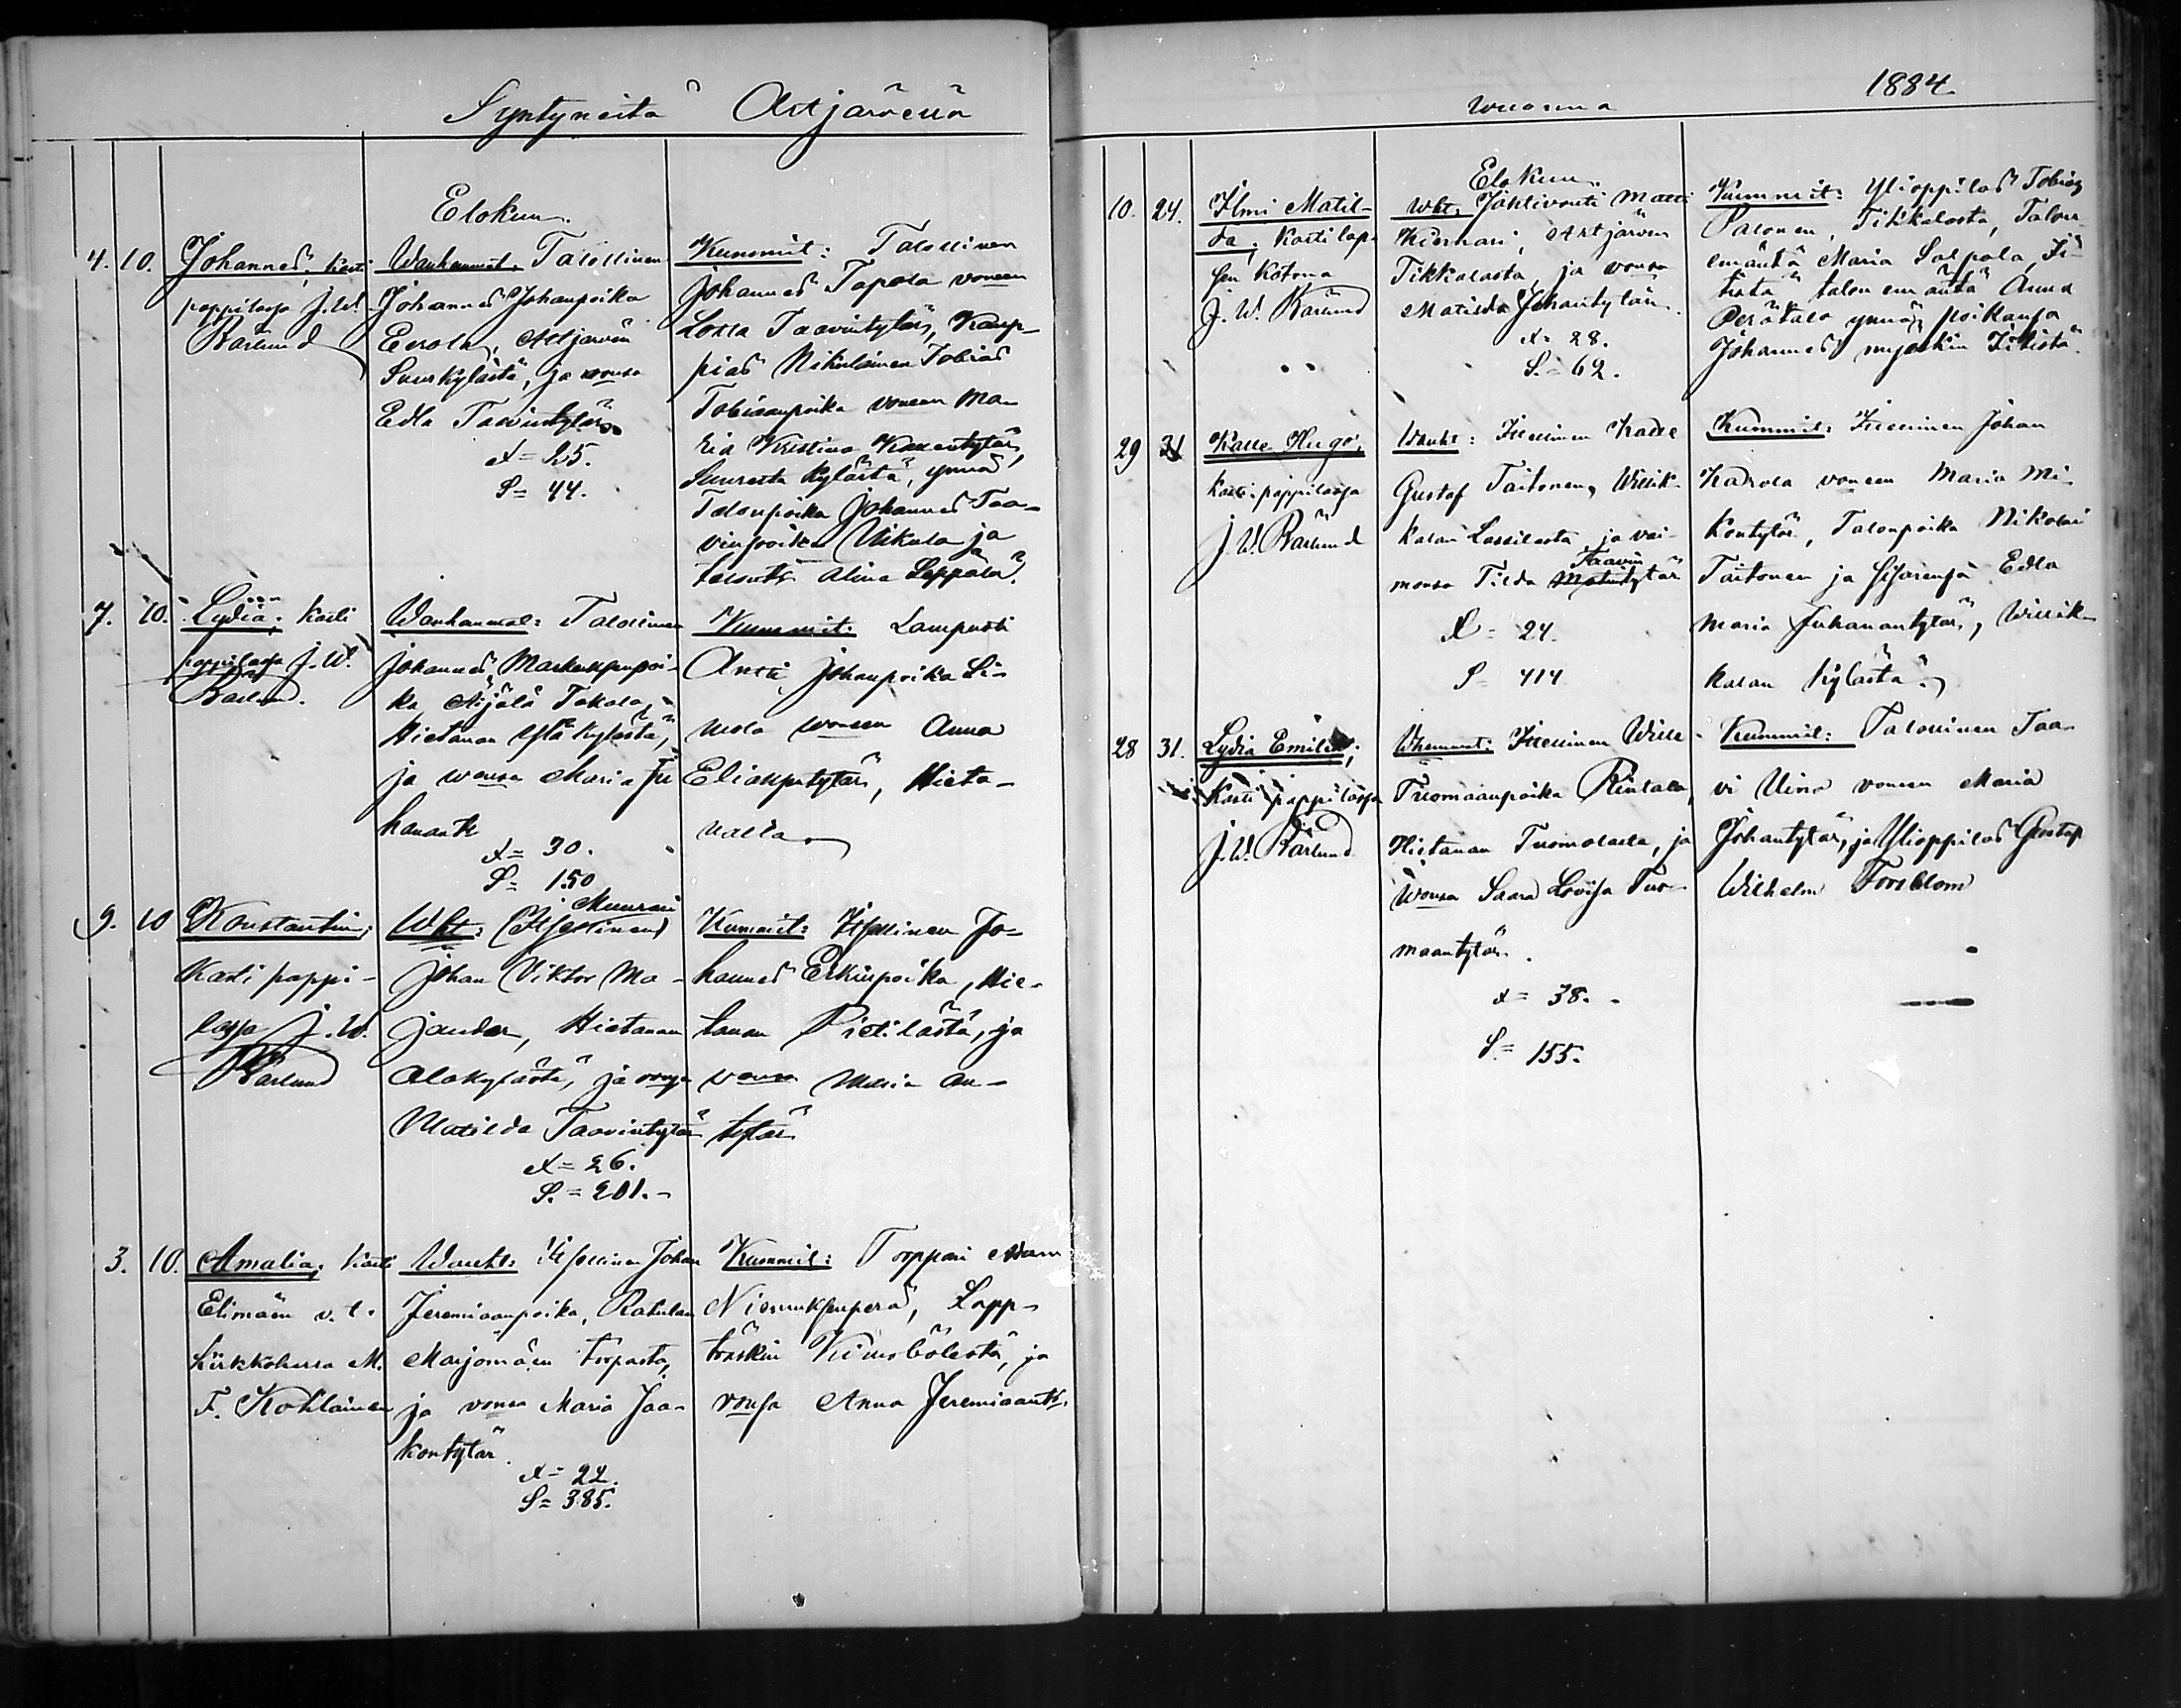 Syntyneitä Artjärvessä
Elokuu.
4. 10. Johannes; kasti
pappilassa J. W.
Barlund
Wanhemmat: Talollinen
Johannes Johanpoika
Eerola, Artjärven
Suurkylästä, ja vonsa
Edla Taavintytär
S = 44.
Kummit: Talollinen
Johannes Tapola voneen
Taavintytär, Kaup-
pias Nikulainen Tobias
Tobiaanpoika voneen Ma-
ria Kristina
Suuresta kylästä, ynnä
Talonpoika Johannes Taa-
vinpoika Nikula ja
Alina Seppälä.
7. 10. Lydia; kasti
pappilassa J. W.
Barlund.
Wanhemmat: Talollinen
Johannes Markuksenpoi-
ka Äijälä Takala,
Hietanan Ylä kylästä,
ja wonsa Maria Ju
hanantr
Ä = 30.
S = 150
Kummit: Lampuoti
Antti Johanpoika
voneen Anna
Eliaksentytär, Hieta-
nalla
9. 10 Konstantin;
Kasti pappi-
lassa J. W.
Barlund
Muurari
Wht: Itsellinen
Johan Viktor Ma-
jander, Hietanan
Alakylästä, ja vonsa
Matilda Taavintytär
Ä = 26.
S. = 201.-
Kummit: Itsellinen Jo-
hannes Erkinpoika, Hie-
tanan Pietilästä, ja
vonsa Maria An-
tytär
3. 10. Amalia; Kasti
Elimäen v. t.
Kirkkoherra M.
F. Kohlainen
Wanht: Itsellinen Johan
Jeremiaanpoika, Ratulan
Marjomäen torpasta,
ja vonsa Maria Jaa-
kontytär.
Ä = 22.
S = 385.
Kummit: Torppari Adam
Niemuksenperä, Lapp-
träskin Kimobölestä, ja
vonsa Anna Jeremiaantr.
wuonna 1884.
Elokuu.
10. 24. Ilmi Matil-
da; kasti lap-
sen kotona
J. W. Barlund
Wht: Jahtivouti Matti
Kiernari, Artjärven
Tikkalasta, ja vonsa
Matilda Johantytär.
Ä = 28.
S. = 62.
Kummit: Ylioppilas Tobias
Palonen, Tikkalasta, Talon
emäntä Maria Salpala, Ii-
tistä talon emäntä Anna
Perätalo ynnä poikansa
Johannes myöskin Iitistä.
29 31 Kalle Hugo;
Kasti pappilassa
J. W. Barlund
Wanht: Itsellinen Kalle
Gustaf Taitonen, Willik-
kalan Lassilasta, ja vai-
Taavin
monsa Tilda Matintytär
Ä = 24.
S = 414
Kummit: Itsellinen Johan
voneen Maria Mi-
kontytär, Talonpoika Nikolai
Taitonen ja sisarensa Edla
Maria Juhanantytär, Willik-
kalan kylästä.
28 31. Lydia Emilia;
Kasti pappilassa
J. W. Barlund
Whemmt: Itsellinen Wille
Tuomaanpoika Rintala,
Hietanan Tuomolasta, ja
Wonsa Saara Lovisa Tuo-
maantytär.
Ä = 38.
S = 155.
Kummit: Talollinen Taa-
vi Uino voneen Maria
Johantytär, ja Ylioppilas Gustaf
Wilhelm Forsblom